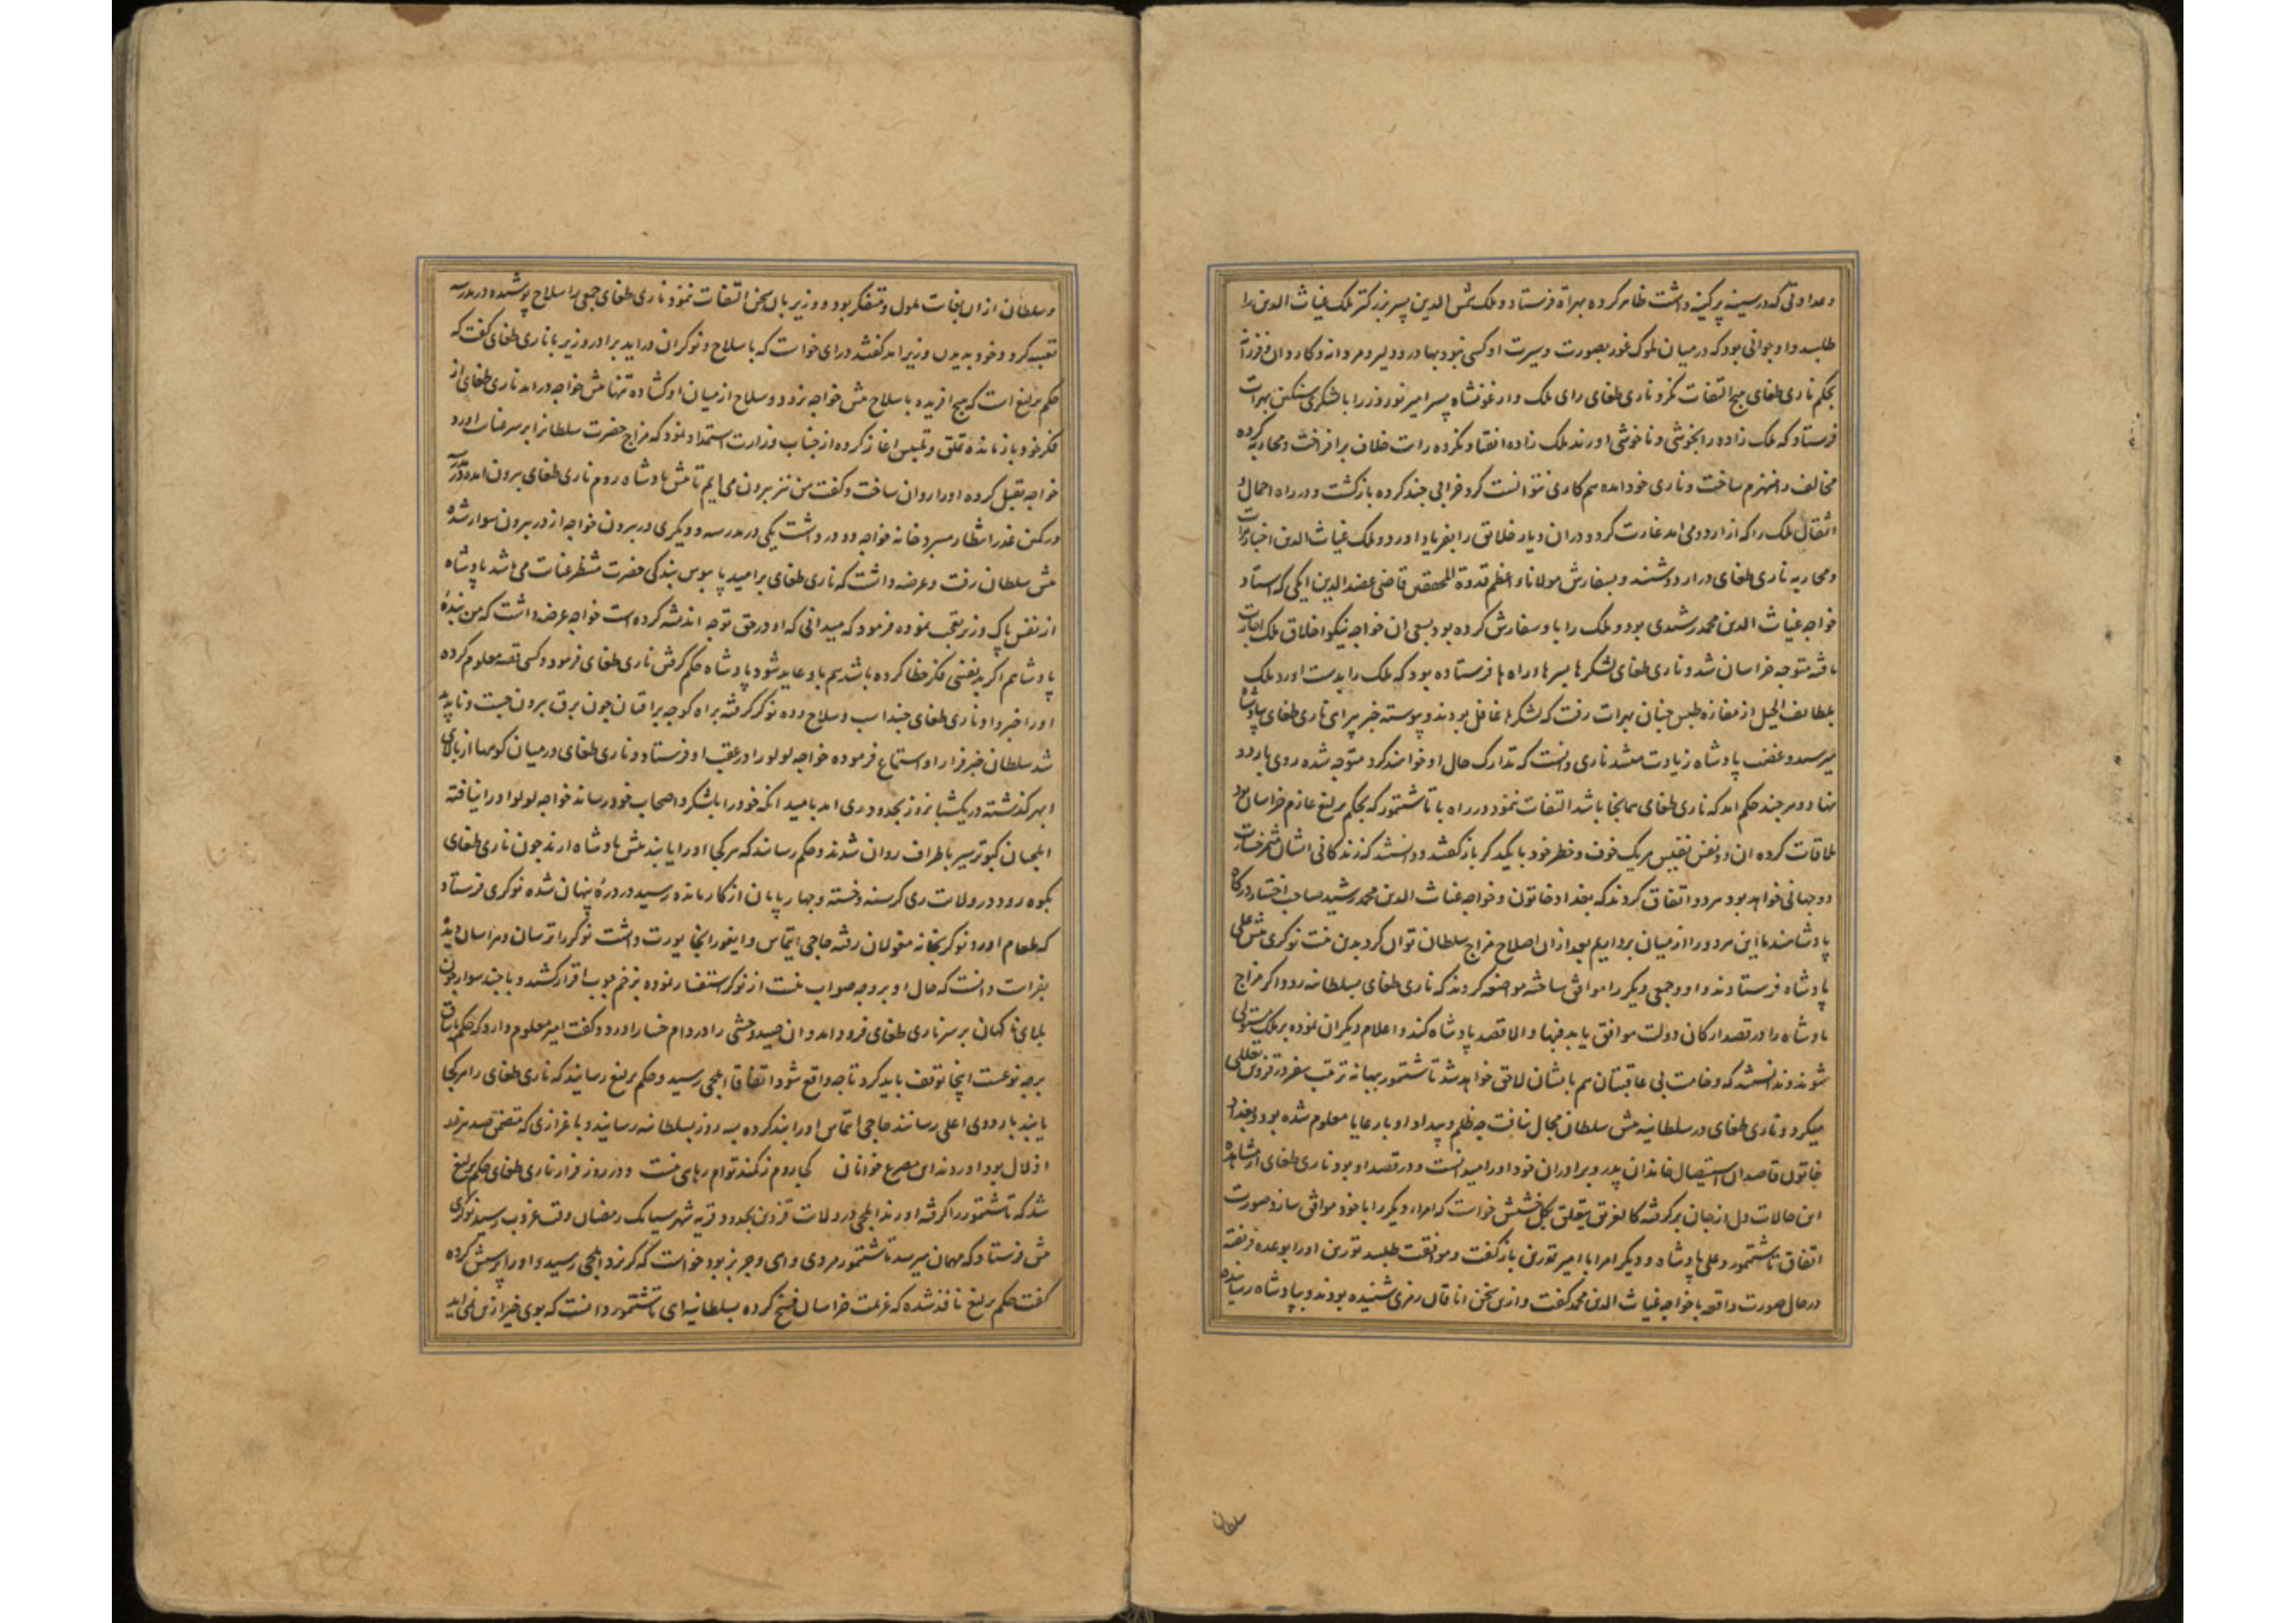 و عداوتی که در سینه پر کینه داشت ظاهر کرده بهراة فرستاد و ملک شمس الدین پسر بزرکتر ملک غیاث الدین را
طلبید و او جوانی بود که در میان ملوک غور بصورت و سیرت او کسی نبود بهادر و دلیر و مردانه و کاردان و فرزانه
بحکم ناری طغای هیچ التفات نکرد ناری طغای رای ملک و ارغونشاه پسر امیر نوروز را با لشکری سنکین بهرات
فرستاد که ملک زاده را بخوشی و ناخوشی اورند ملک زاده انقیاد نکرده رایت خلاف برافراخت و محاربه کرده
مخالف را منهزم ساخت و ناری خود امده هم کاری نتوانست کرد خرابی چند کرده بازکشت و در راه احمال و
اثقال ملک را که از اردو می امد غارت کرد و دران دیار خلایق را بفریاد اورد و ملک غیاث الدین اخبار هرات
و محاربه ناری طغای در اردو شنید و بسفارش مولانا و اعظم قدوة المحققین قاضی عضد الدین ایکی که استاد
خواجه غیاث الدین محمد رشیدی بود و ملک را باو سفارش کرده بود بسعی ان خواجه نیکو اخلاق ملک اجازت
یافته متوجه خراسان شد و ناری طغای لشکرها بسر هاوراه ها فرستاده بود که ملک را بدست اورد ملک
بلطایف الحیل از مفازه طبس چنان بهرات رفت که لشکرها غافل بودند و پیوسته خبر بیراهی ناری طغای بپادشاه
میرسید و غضب پادشاه زیادت میشد ناری دانست که تدارک حال او خواهند کرد متوجه شده روی باردو
نهاد و هر چند حکم امد که ناری طغای همانجا باشد التفات ننمود و در راه با تاشتمور که بحکم یرلیغ عازم خراسان بود
ملاقات کرده ان دو نفس نفیس هریک خوف و خطر خود با یکدیکر بازکفتند و دانستند که زندکانی ایشان مثمر خسارت
دو جهانی خواهد بود هر دو اتفاق کردند که بغداد خاتون و خواجه غیاث الدین محمد رشید صاحب اختیار درکاه
پادشاهند ما این هر دو را از میان برداریم بعد ازان اصلاح مزاج سلطان توان کرد بدین نیت نوکری پیش علی
پادشاه فرستادند و او و جمعی دیکر را موافق ساخته مواضعه کردند که ناری طغای بسلطانیه رود اکر مزاج
پادشاه را در قصد ارکان دولت موافق یابد فبها و الا قصد پادشاه کند و اعلام دیکران نموده بر ملک مستولی
شوند و ندانستند که وخامت بی عاقبتان هم بایشان لاحق خواهد شد تاشتمور ببهانه ترتیب سفر در قزوین تعللی
میکرد و ناری طغای در سلطانیه پیش سلطان مجال نیافت چه ظلم و بیداد او بارعایا معلوم شده بود و بغداد
خاتون قاصد ان استیصال خاندان پدر و برادران خود او را میدانست و در قصد او بود ناری طغای از مشاهده
این حالات دل از جان برکرفته کالغریق یتعلق بکل حشیش خواست که امراء دیکر را با خود موافق سازد صورت
اتفاق تاشتمور و علی پادشاه و دیکر امرا با امیر تورین بازکفت و موافقت طلبید تورین او را بوعده فریفته
در حال صورت واقعه با خواجه غیاث الدین محمد کفت و ازین سخن اناقان رمزی شنیده بودند و بپادشاه رسانیده
سلطان
و سلطان ازان جهات ملول و متفکر بود و وزیر بان سخن التفات ننمود ناری طغای جمعی را سلاح پوشیده در مدرسه
تعبیه کرد و خود بدیدن وزیر امد کفتند در ای خواست که با سلاح و نوکران دراید برادر وزیر با ناری طغای کفت که
حکم یرلیغ است که هیچ افریده با سلاح پیش خواجه نرود و سلاح از میان او کشاده تنها پیش خواجه درامد ناری طغای از
فکر خود باز مانده تملق و تلبیس اغاز کرده از جناب وزارت استمداد نمود که مزاج حضرت سلطان را بر سر عنایت اورد
خواجه تقبل کرده او را روان ساخت و کفت من نیز بیرون می ایم تا پیش پادشاه روم ناری طغای بیرون امده در مدرسه
در کمین غدر انتظار میبرد خانه خواجه دو در داشت یکی در مدرسه و دیکری در بیرون خواجه از در بیرون سوار شده
پیش سلطان رفت و عرضه داشت که ناری طغای بر امید پا بوس بندکی حضرت منتظر عنایت می باشد پادشاه
از نفس پاک وزیر تعجب نموده فرمود که میدانی که او در حق تو چه اندیشه کرده است خواجه عرضه داشت که من بنده
پادشاهم اکر بدنفسی فکر خطا کرده باشد هم باو عاید شود پادشاه حکم کرفتن ناری طغای فرمود و کسی قصه معلوم کرده
او را خبر داد ناری طغای چند اسب و سلاح و ده نوکر کرفته براه کوچه یراقیان چون برق بیرون جست و ناپدید
شد سلطان خبر فرار او استماع فرموده خواجه لولو را در عقب او فرستاد و ناری طغای در میان کوهها از بالای
ابهر کذشته در یکشبانروز بحدود ری امد بامید انکه خود را بلشکر و اصحاب خود رساند خواجه لولو او را نیافته
ایلچیان کبوتر سیر باطراف روان شدند و حکم رساندند که هر کجا او را یابند پیش پادشاه ارند چون ناری طغای
بکوه رود در ولایت ری کرسنه و خسته و چهارپایان از کار مانده رسید در درهٔ پنهان شده نوکری فرستاد
که طعام اورد نوکر بخانه مغولان رفته حاجی ایتماس و ایغور انجا یورت داشت نوکر را ترسان و هراسان دیده
بفراست دانست که حال او بر وجه صواب نیست از نوکر استفسار نموده بزخم چوب اقرار کشید و با چند سوار چون
بلای ناکهان بر سر ناری طغای فرود امد و ان صید وحشی را در دام خسار اورد و کفت امیر معلوم دارد که حکم یاساق
بر چه نوعست اینجا توقف باید کرد تا چه واقع شود اتفاقا ایلچی رسید و حکم یرلیغ رسانید که ناری طغای را هر کجا
یابند باردوی اعلی رسانند حاجی ایتماس او را بند کرده بسه روز بسلطانیه رسانید و باعزازی که متضمن صد هزار
اذلال بود اوردند این مصرع خوانان کجا روم ز کمند توام رهایی نیست و در روز فرار ناری طغای حکم یرلیغ
شد که تاشتمور را کرفته اورند ایلچی در ولایت قزوین بحدود قریه شهر سیاهک رمضان وقت غروب رسید نوکری
پیش فرستاد که مهمان میرسد تاشتمور مردی داهی و جربز بود خواست که کریزد ایلچی رسید و او را پرسش کرده
کفت حکم یرلیغ نافذ شده که عزیمت خراسان فسخ کرده بسلطانیه ای تاشتمور دانست که بوی خیر ازین نمی اید